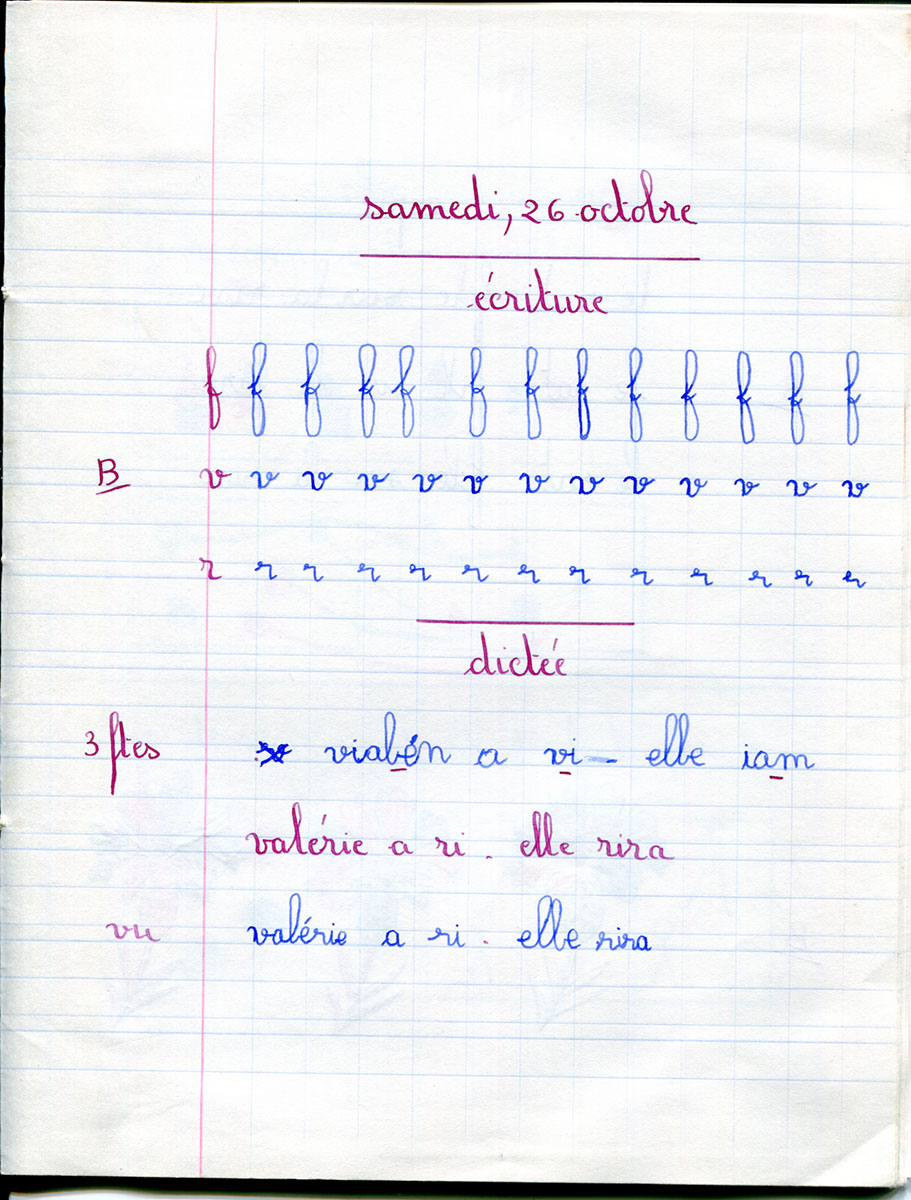 samedi, 26 octobre
écriture
f f f f f f f f f f f f f
B v v v v v v v v v v v v v
r r r r r r r r r r r r r
dictée
3 ftes viabén a vi - elle iam
valérie a ri . elle rira
vu valérie a ri . elle rira